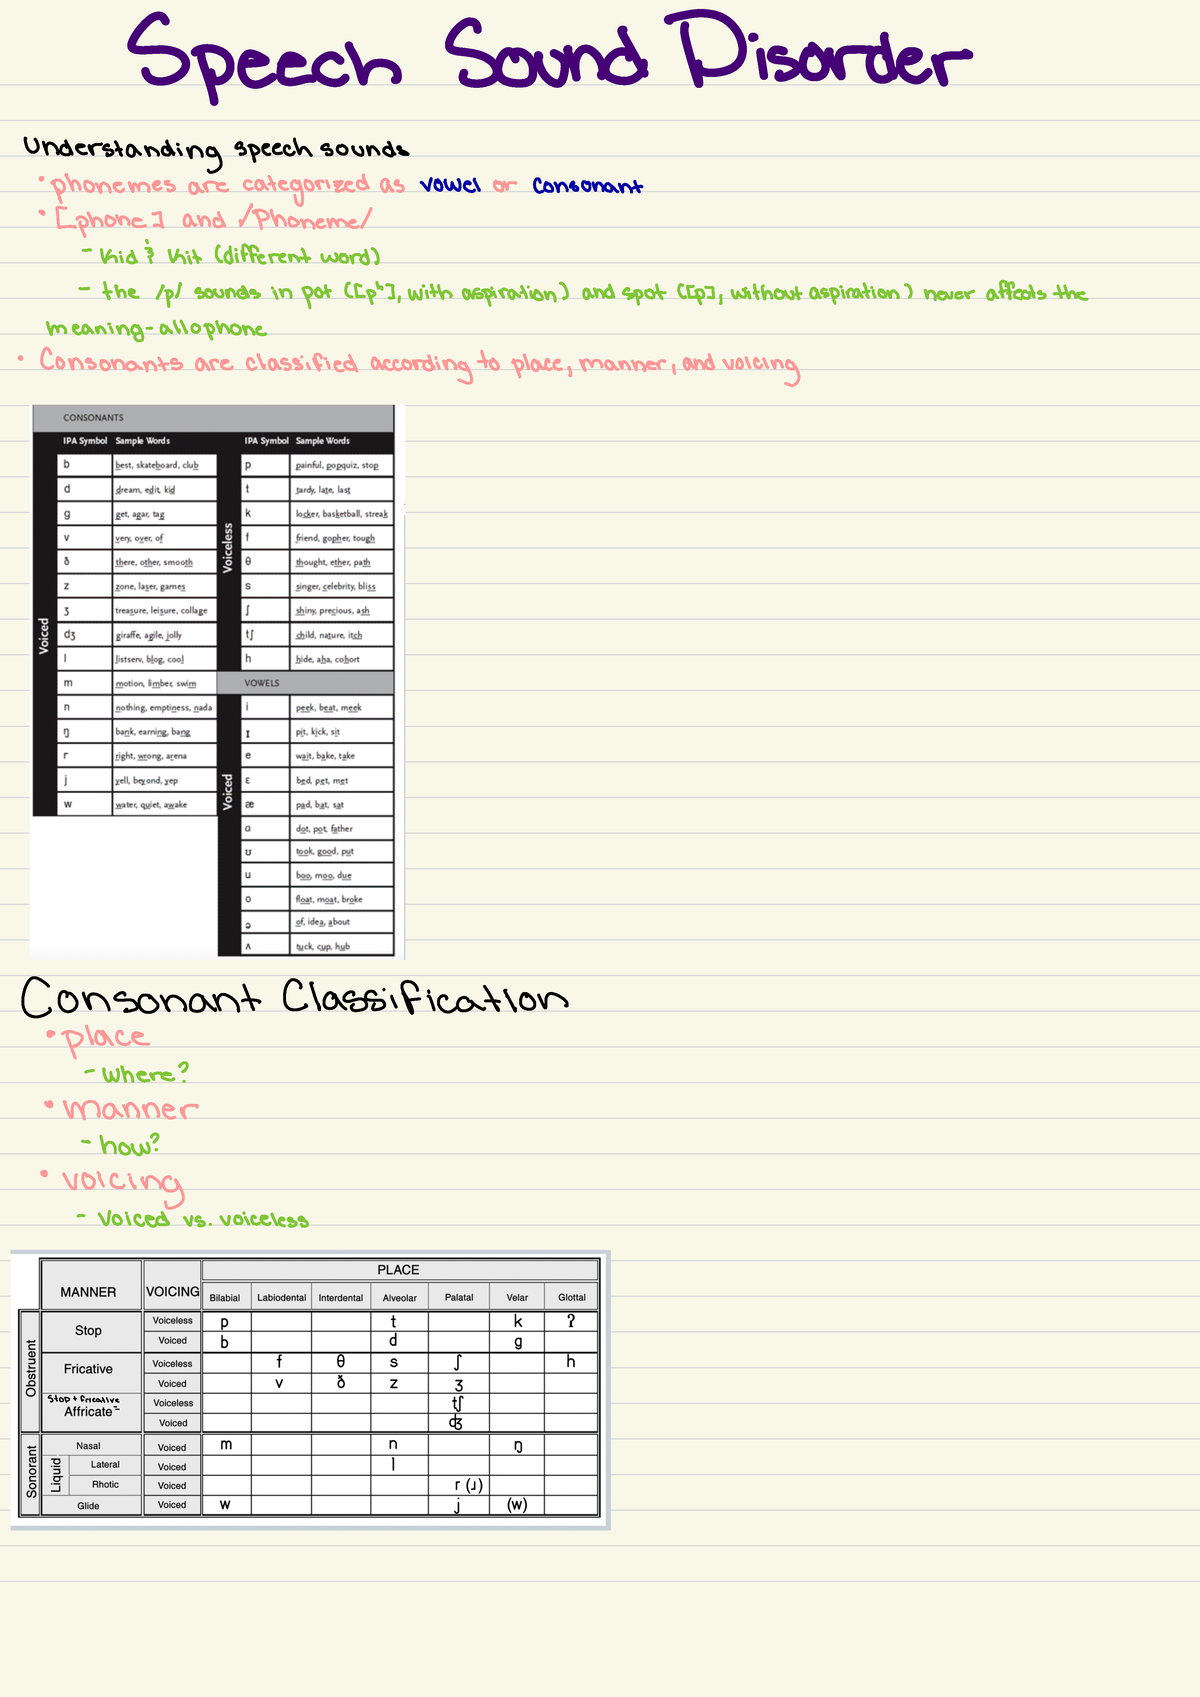 Speech Sound Disorder
Understanding speech sounds
• phonemes are categorized as vowel or consonant
• [phone] and /Phoneme/
- Kid & Kit (different word)
- the /p/ sounds in pot ([pʰ], with aspiration) and spot ([p], without aspiration) never affects the
meaning-allophone
• Consonants are classified according to place, manner, and voicing
CONSONANTS
IPA Symbol Sample Words IPA Symbol Sample Words
Voiced
Voiceless
b best, skateboard, club p painful, popquiz, stop
d dream, edit, kid t tardy, late, last
g get, agar, tag k locker, basketball, streak
v very, over, of f friend, gopher, tough
ð there, other, smooth θ thought, ether, path
z zone, laser, games s singer, celebrity, bliss
ʒ treasure, leisure, collage ʃ shiny, precious, ash
dʒ giraffe, agile, jolly tʃ child, nature, itch
l listserv, blog, cool h hide, aha, cohort
m motion, limber, swim VOWELS
Voiced
n nothing, emptiness, nada i peek, beat, meek
ŋ bank, earning, bang ɪ pit, kick, sit
r right, wrong, arena e wait, bake, take
j yell, beyond, yep ɛ bed, pet, met
w water, quiet, awake æ pad, bat, sat
ɑ dot, pot, father
ʊ took, good, put
u boo, moo, due
o float, moat, broke
ə of, idea, about
ʌ tuck, cup, hub
Consonant Classification
• place
- where?
• manner
- how?
• voicing
- Voiced vs. voiceless
PLACE
MANNER VOICING Bilabial Labiodental Interdental Alveolar Palatal Velar Glottal
Obstruent
Stop Voiceless p t k ʔ
Voiced b d g
Fricative Voiceless f θ s ʃ h
Voiced v ð z ʒ
Stop + fricative
Affricate = Voiceless tʃ
Voiced dʒ
Sonorant
Nasal Voiced m n ŋ
Liquid
Lateral Voiced l
Rhotic Voiced r (ɹ)
Glide Voiced w j (w)